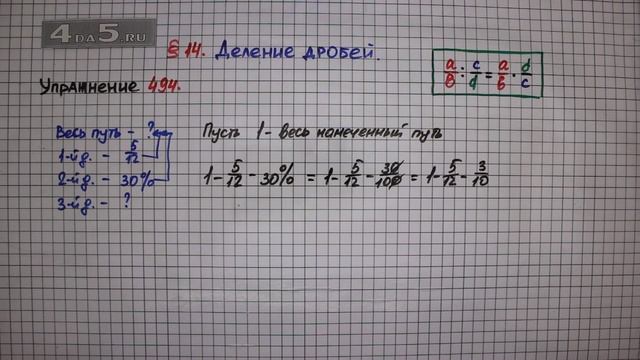 4DA5.RU
§14. Деление дробей.
a/b : c/d = a/b · d/c
Упражнение 494.
Весь путь - ?
1-й д. - 5/12
2-й д. - 30%
3-й д. - ?
Пусть 1 - весь намеченный путь
1 - 5/12 - 30% = 1 - 5/12 - 30/100 = 1 - 5/12 - 3/10